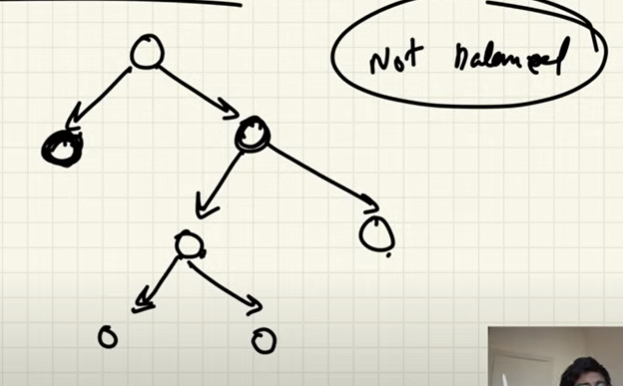 Not balanced